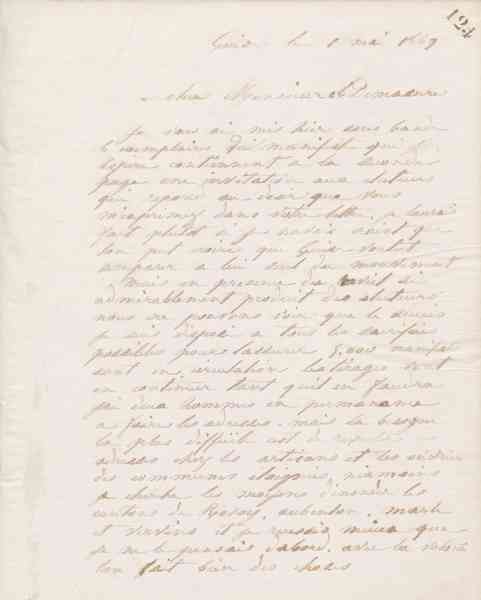 124
Guise le 1 mai 1869
cher Monsieur
Je vous ai mis hier sous bande
exemplaires du manifest qui
contiennent a la seconde
page une invitation aux electeurs
qui repond au desir que vous
m'exprimez dans votre lettre. je l'aurai
fait plutot si je n'avais craint que
l'on put croire que Guise voulut
emparer a lui seul du mouvement
Mais en presence du
admirablement produit des electeurs
nous ne pouvons voir que le succes
je suis disposé a tous les sacrifices
possibles pour l'assurer manifest
sont en circulation les tirages vont
en continuer tant qu'il en faudra
j'ai deux hommes en permanence
a faire les adresses. mais la besogne
la plus difficile est de
adresses chez les artisans et les
des communes éloignés, néanmoins
je cherche les moyens d'inonder les
cantons de Rozoy, aubenton, marle
et vervins et je reussis mieux que
je ne le pensais d'abord. avec la volonté
l'on fait bien des choses